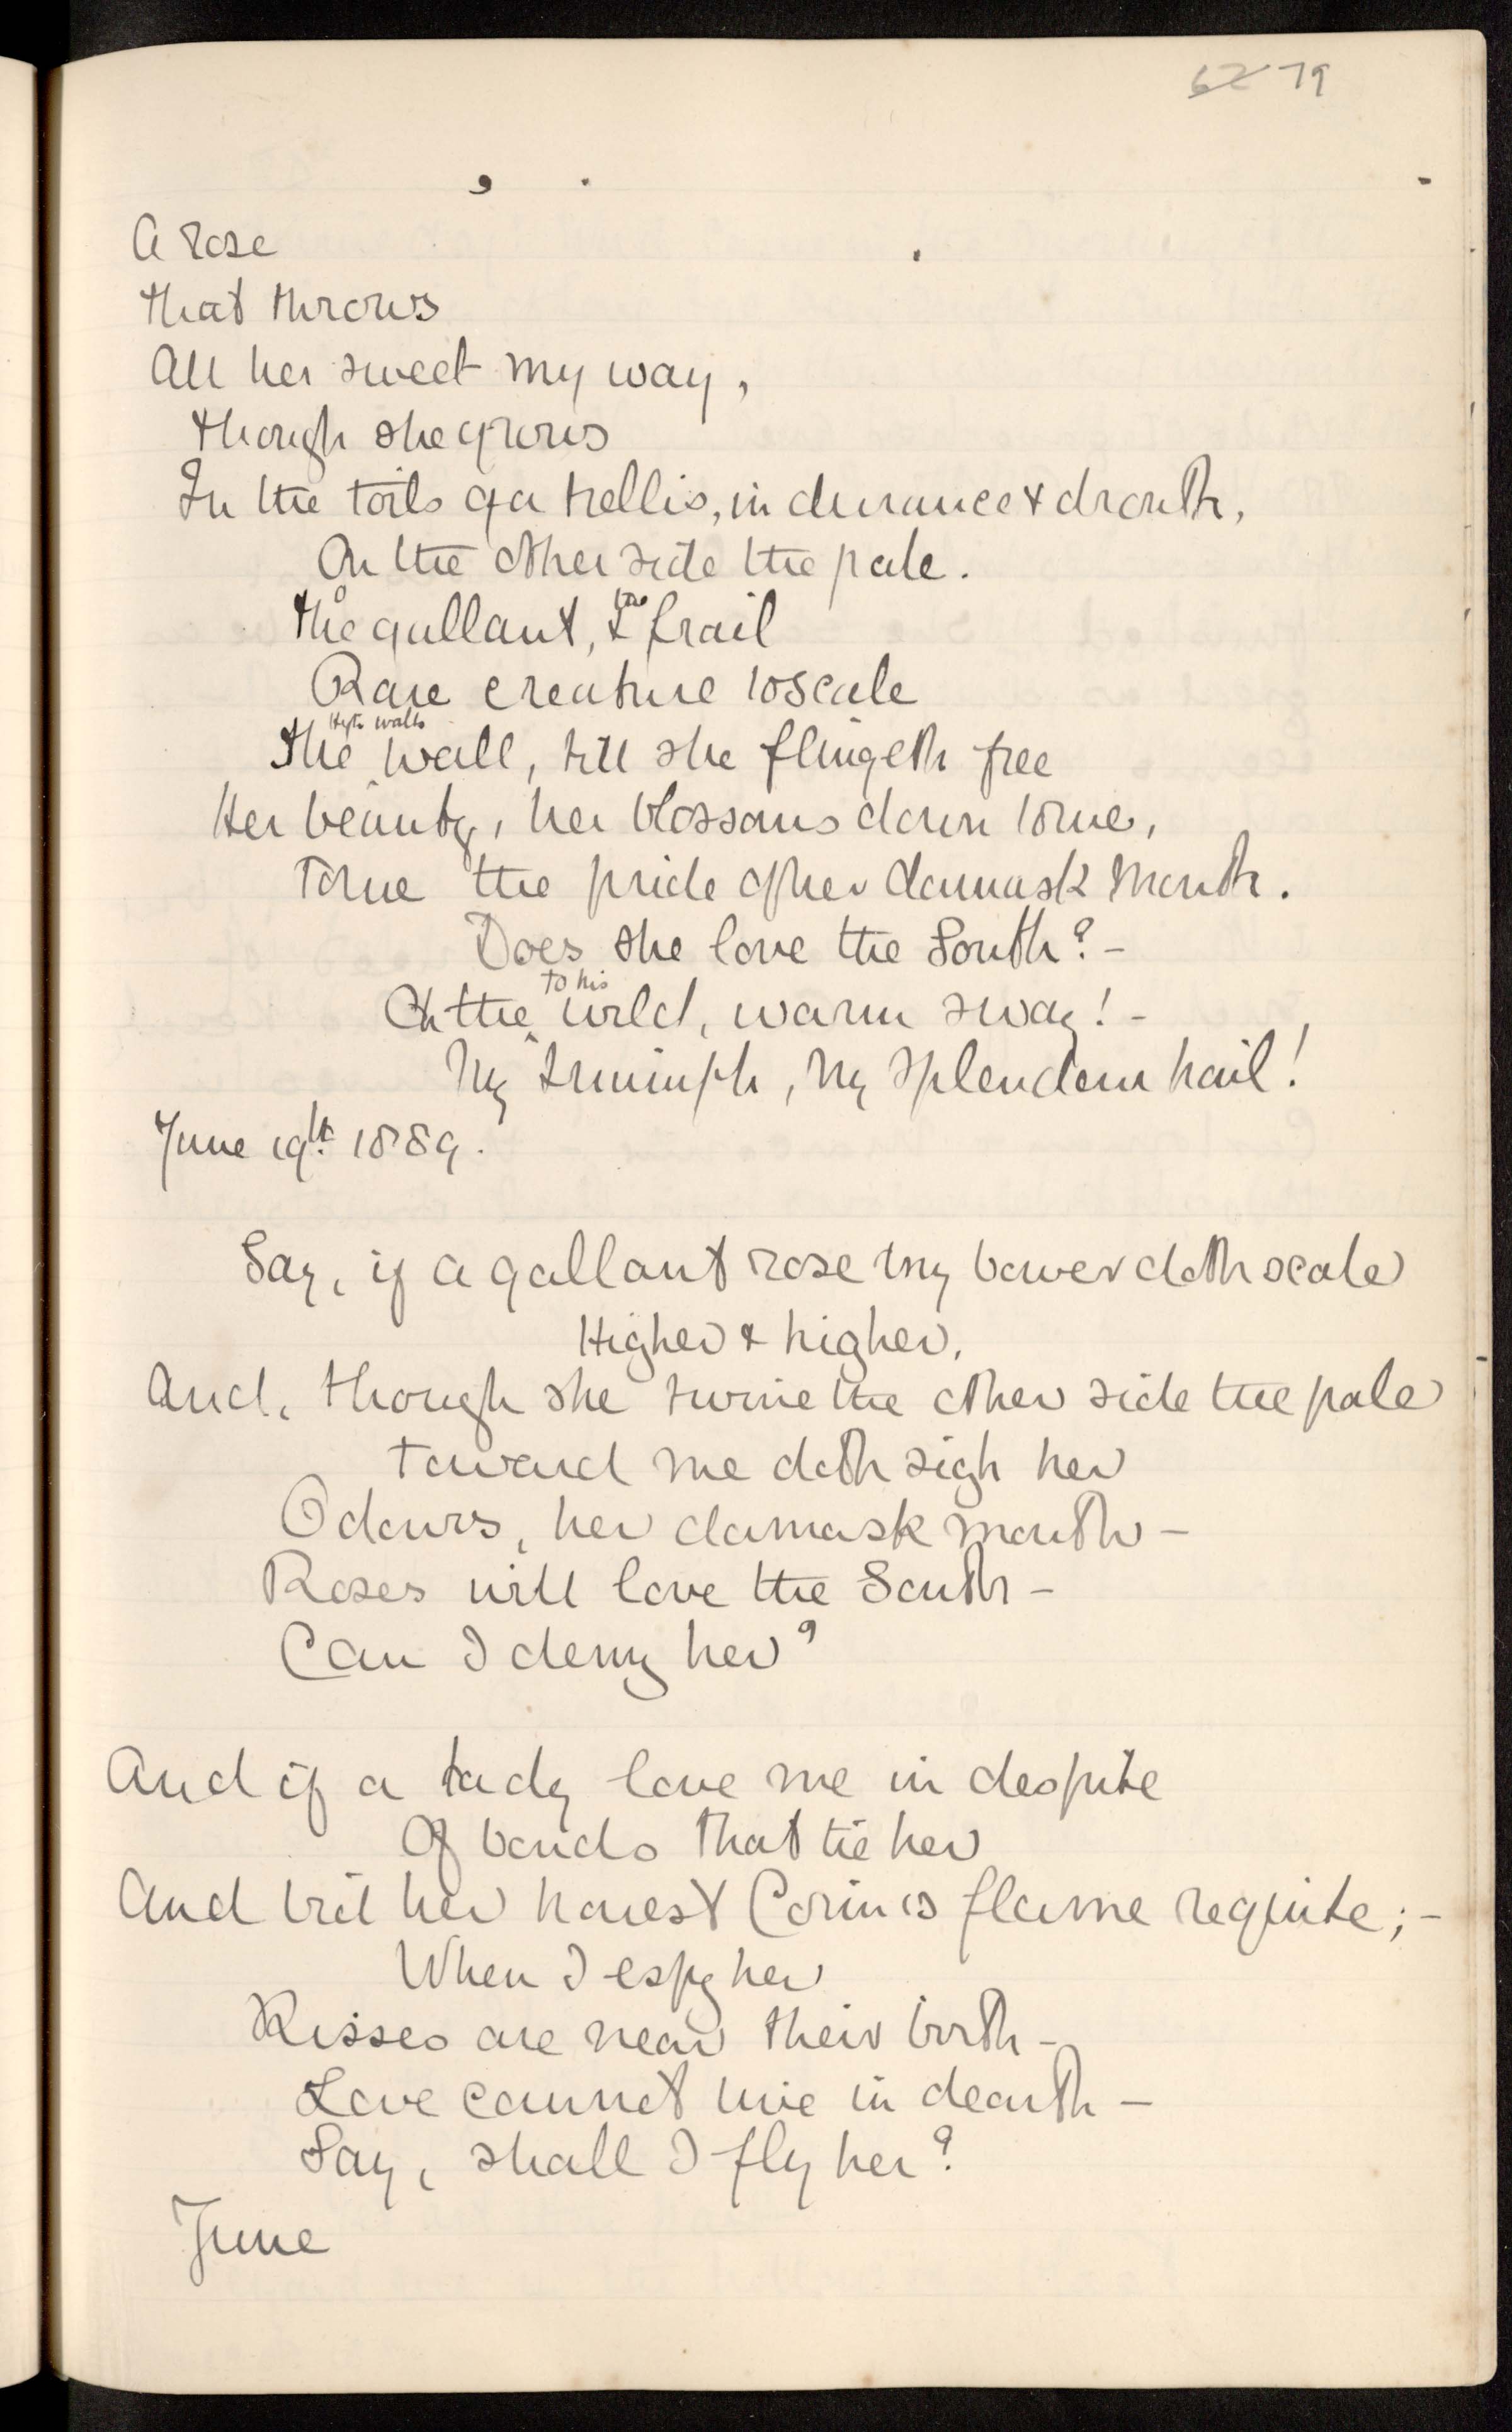 62 79
A rose
that throws
All her sweet my way,
though she grows
In the toils of a trellis, in durance & drouth,
On the other side the pale.
the gallant, & frail
Rare creature to scale
high walls
The wall, till she flingeth free
Her beauty, her blossoms down to me,
To me the pride of her damask mouth.
Does she love the South? -
to his
Oh the wild, warm sway! -
My triumph, my splendour hail!
June 19th. 1889.
Say, if a gallant rose my bower doth scale
Higher & higher,
And, though she twine the other side the pale
toward me doth sigh her
Odours, her damask mouth -
Roses will love the South -
Can I deny her?
And if a lady love me in despite
Of bonds that tie her
And bid her honest Corin's flame requite; -
When I espy her
Kisses are near their birth -
Love cannot live in dearth -
Say, shall I fly her?
June